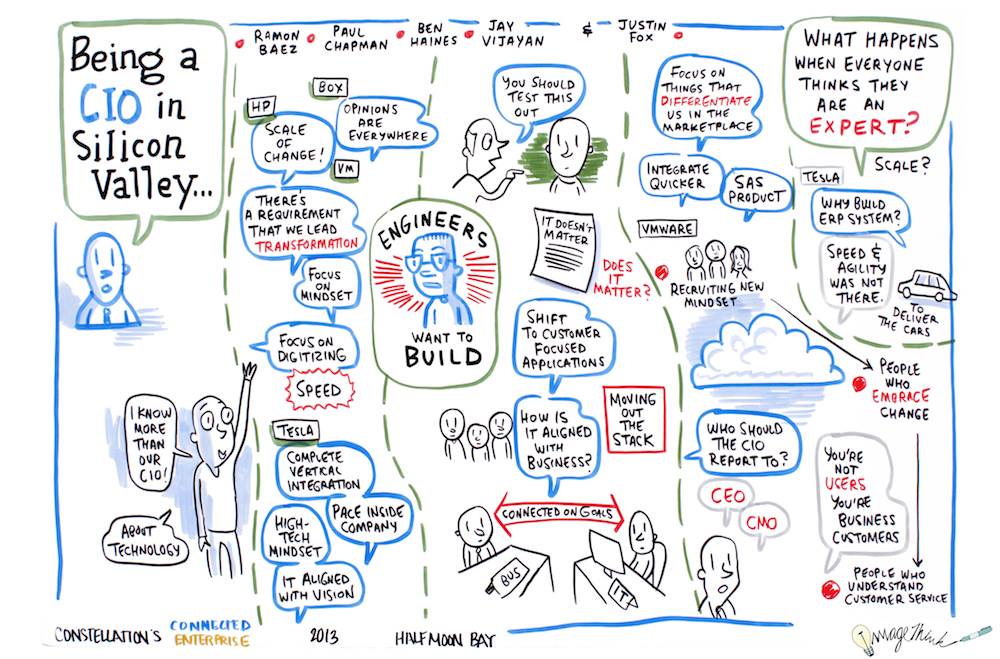 Being a
CIO in
Silicon
Valley...
RAMON
BAEZ
PAUL
CHAPMAN
BEN
HAINES
JAY
VIJAYAN
&
JUSTIN
FOX
HP
SCALE
OF
CHANGE!
BOX
OPINIONS
ARE
EVERYWHERE
VM
THERE'S
A REQUIREMENT
THAT WE LEAD
TRANSFORMATION
FOCUS
ON
MINDSET
FOCUS ON
DIGITIZING
SPEED
I KNOW
MORE
THAN
OUR
CIO!
ABOUT
TECHNOLOGY
TESLA
COMPLETE
VERTICAL
INTEGRATION
PACE INSIDE
COMPANY
HIGH-
TECH
MINDSET
IT ALIGNED
WITH VISION
ENGINEERS
WANT TO
BUILD
YOU SHOULD
TEST THIS
OUT
IT DOESN'T
MATTER
DOES
IT
MATTER?
SHIFT
TO CUSTOMER
FOCUSED
APPLICATIONS
HOW IS
IT ALIGNED
WITH
BUSINESS?
MOVING
OUT
THE
STACK
CONNECTED ON GOALS
BUS
IT
FOCUS ON
THINGS THAT
DIFFERENTIATE
US IN THE
MARKETPLACE
INTEGRATE
QUICKER
SAS
PRODUCT
VMWARE
RECRUITING NEW
MINDSET
WHO SHOULD
THE CIO
REPORT TO?
CEO
CMO
WHAT HAPPENS
WHEN EVERYONE
THINKS THEY
ARE AN
EXPERT?
SCALE?
TESLA
WHY BUILD
ERP SYSTEM?
SPEED &
AGILITY
WAS NOT
THERE.
TO
DELIVER
THE CARS
PEOPLE
WHO
EMBRACE
CHANGE
YOU'RE
NOT
USERS
YOU'RE
BUSINESS
CUSTOMERS
PEOPLE WHO
UNDERSTAND
CUSTOMER SERVICE
CONSTELLATION'S
CONNECTED
ENTERPRISE
2013
HALFMOON BAY
ImageThink